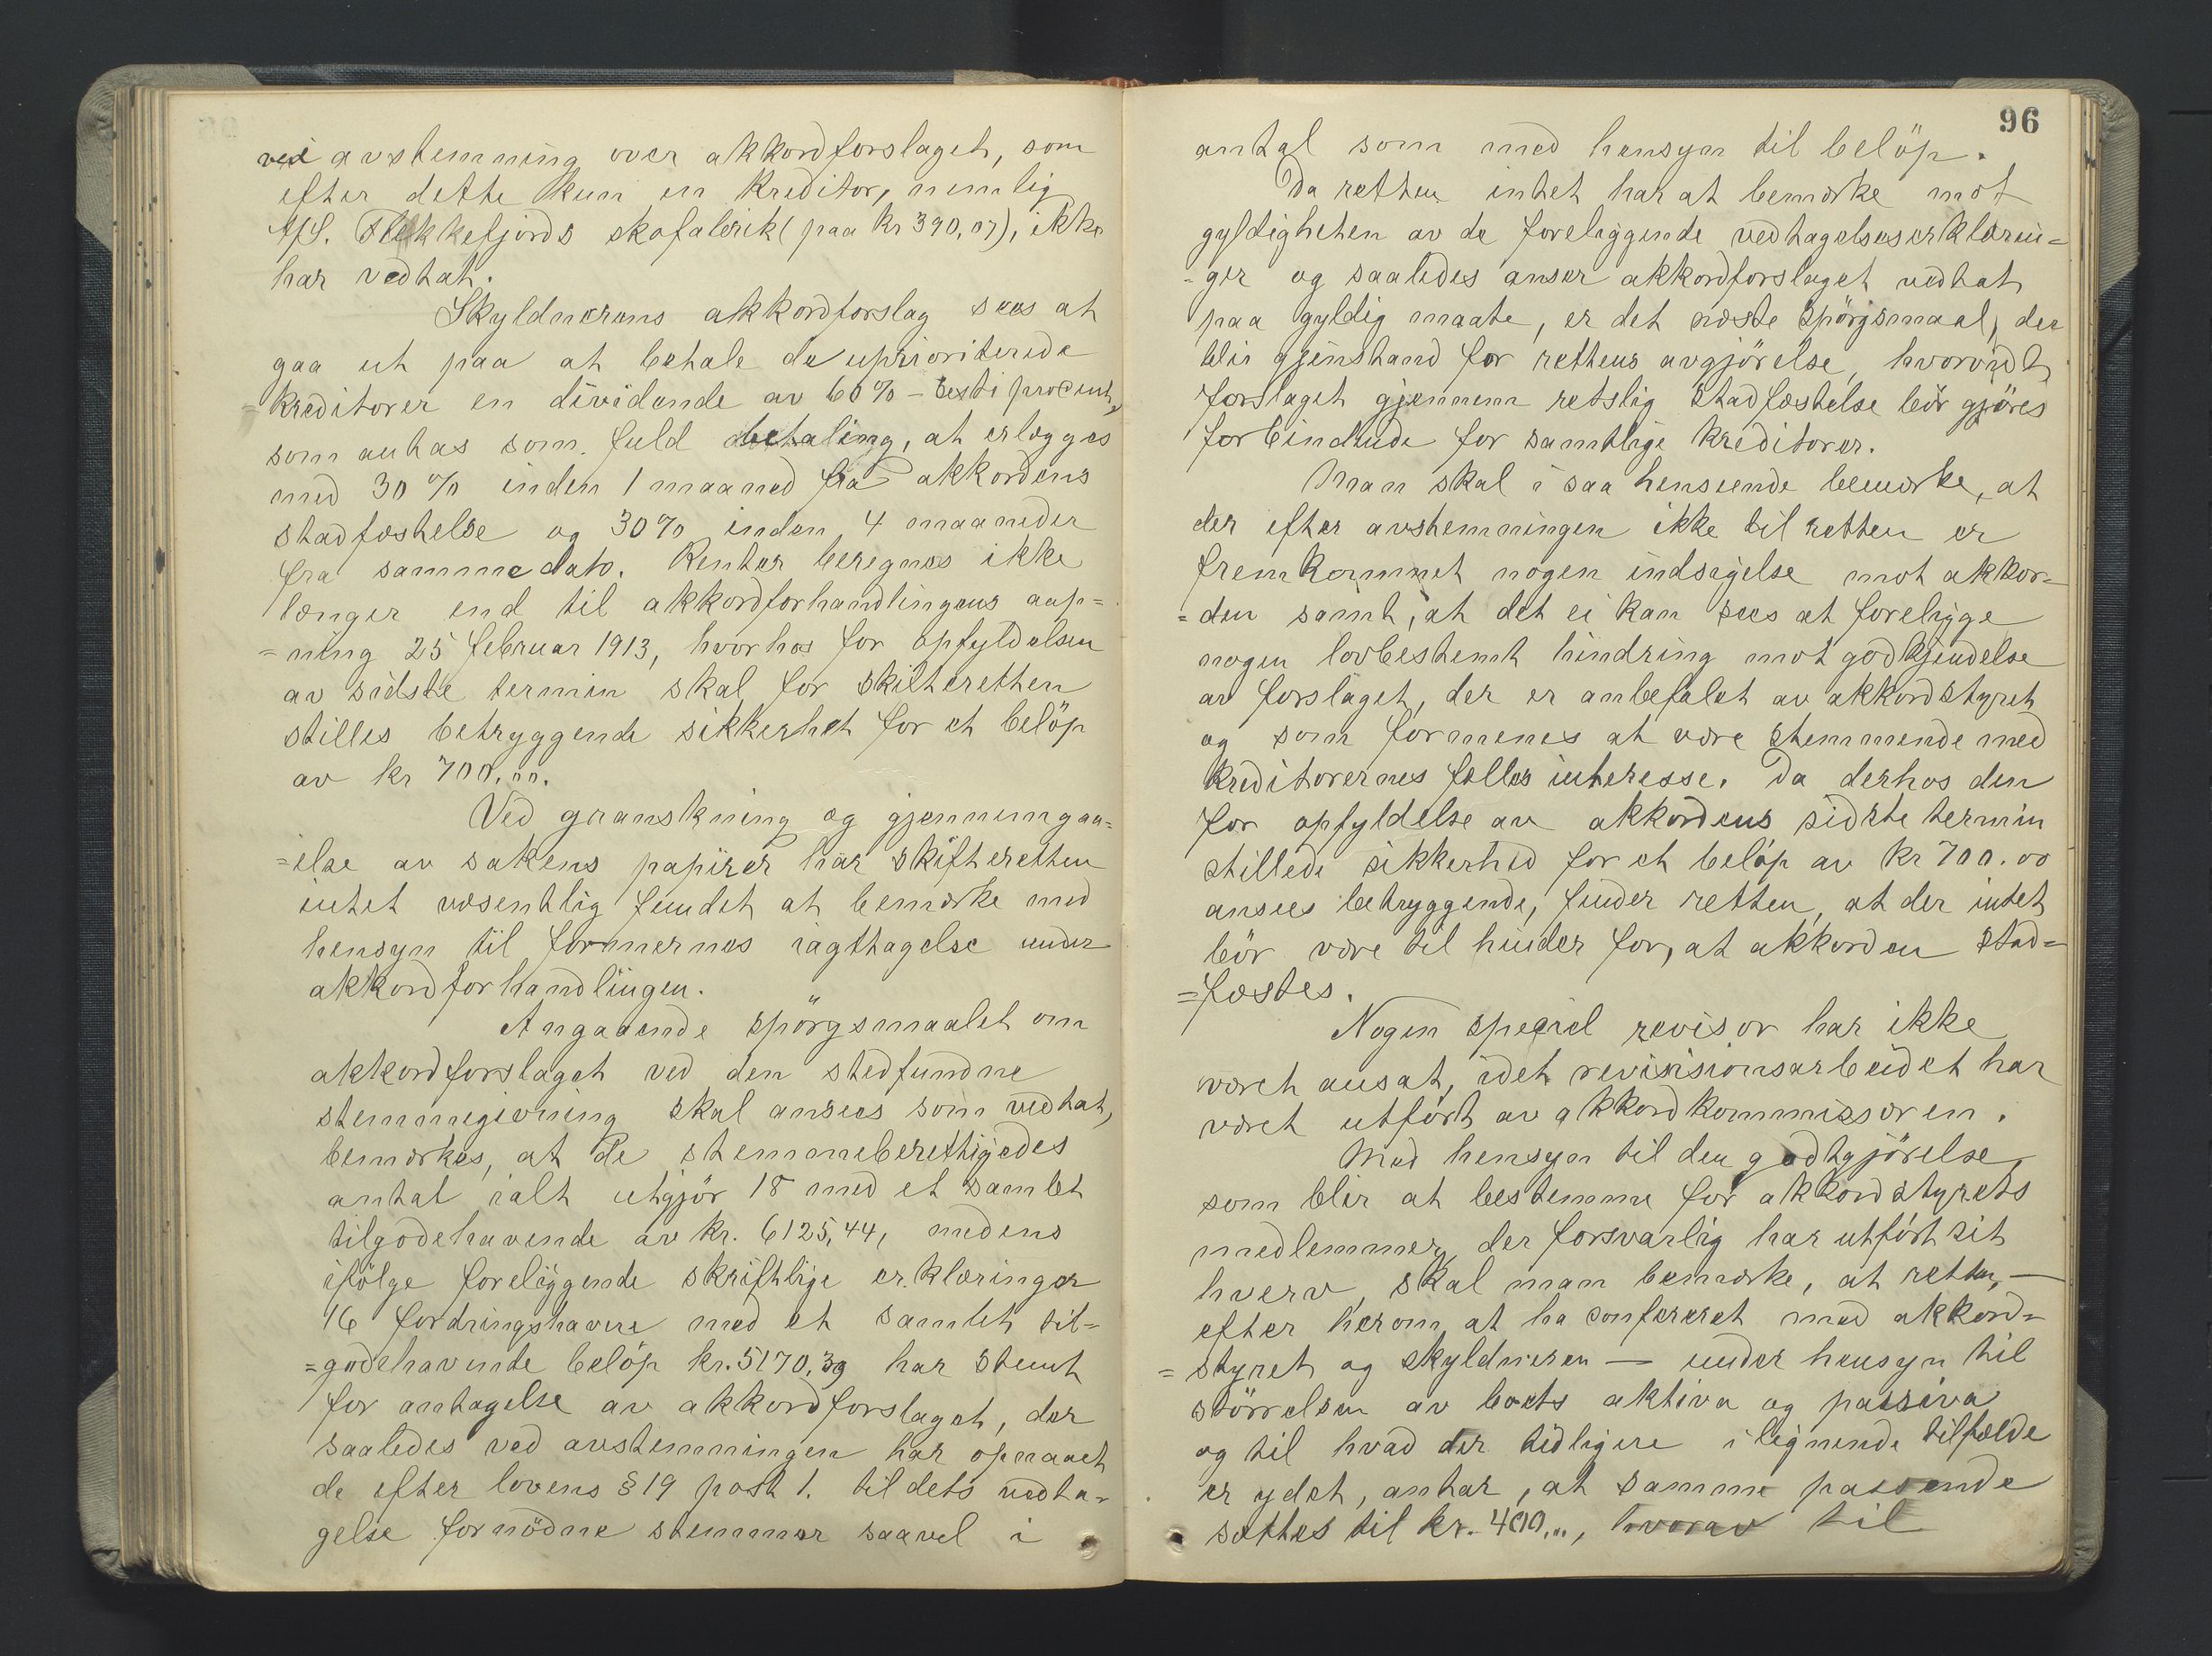 ved avstemning over akkordforslaget, som
efter dette kun en kreditor, nemlig
A/S. Flekkefjords skofabrik (paa kr 390,07), ikke
har vedtat.
Skyldnerens akkordforslag sees at
gaa ut paa at betale de uprioriterede
=kreditorer en dividende av 60% – sesti procent,
som antas som fuld betaling, at erlægges
med 30% inden 1 maaned fra akkordens
stadfæstelse og 30% inden 4 maaneder
fra samme dato. Renter beregnes ikke
længer end til akkordforhandlingens aap=
=ning 25 februar 1913, hvorhos for opfyldelsen
av sidste termin skal for skifteretten
stilles betryggende sikkerhet for et beløp
av kr 700,00.
Ved granskning og gjennemgaa=
=else av sakens papirer har skifteretten
intet væsentlig fundet at bemærke med
hensyn til formernes iagttagelse under
akkordforhandlingen.
Angaaende spörgsmaalet om
akkordforslaget ved den stedfundne
stemmegivning skal ansees som vedtat,
bemærkes, at de stemmeberettigedes
antal ialt utgjör 18 med et samlet
tilgodehavende av kr. 6125,44, medens
ifölge foreliggende skriftlige erklæringer
16 fordringshavere med et samlet til=
=godehavende belöp kr. 5170,39 har stemt
for antagelse av akkordforslaget, der
saaledes ved avstemningen har opnaaet
de efter lovens § 19 post 1. til dets vedta=
gelse fornödne stemmer saavel i
96
antal som med hensyn til belöp.
Da retten intet har at bemærke mot
gyldigheten av de foreliggende vedtagelseserklærin=
=ger og saaledes anser akkordforslaget vedtat
paa gyldig maate, er det næste spörgsmaal, der
blir gjenstand for rettens avgjörelse, hvorvidt
forslaget gjennem retslig stadfæstelse bör gjöres
forbindende for samtlige kreditorer.
Man skal i saa henseende bemærke, at
der efter avstemningen ikke til retten er
fremkommet nogen indsigelse mot akkor=
=den samt, at det ei kan sees at foreligge
nogen lovbestemt hindring mot godkjendelse
av forslaget, der er anbefalet av akkordstyret
og som formenes at være stemmende med
kreditorernes fælles interesse. Da derhos den
for opfyldelse av akkordens sidste termin
stillede sikkerhed for et belöp av kr 700.00
ansees betryggende, finder retten, at der intet
bör være til hinder for, at akkorden stad=
=fæstes.
Nogen speciel revisor har ikke
været ansat, idet revisisionsarbeidet har
været utfört av akkordkommissæren.
Med hensyn til den godtgjörelse,
som blir at bestemme for akkordstyrets
medlemmer, der forsvarlig har utfört sit
hverv, skal man bemærke, at retten, —
efter herom at ha confereret med akkord=
=styret og skyldneren — under hensyn til
störrelsen av boets aktiva og passiva
og til hvad der tidligere i lignende tilfælde
er ydet, antar, at samme passende
sættes til kr. 400,00, hvorav til